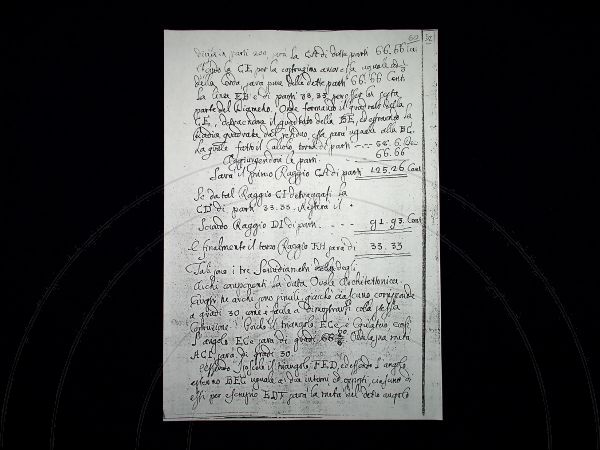 60
in parti 200, sarà la CA di dette parti 66.66 Cen
la CE, per la costruzione ancor essa uguale ad 1/3
della Corda, sarà pure delle dette parti 66.66 Cent
La linea EB è di parti 33.33 per esser la sesta
parte del Diametro. Onde formando il quadrato della
CE, e il quadrato della BE, ed estraendo la
Radice quadrata dal residuo, essa sarà uguale alla BC.
La quale fatto il Calcolo torna di parti
Aggiungendovi le parti 66.66
Sarà il primo Raggio CA di parti 125.26 Cent
Se da tal Raggio CI
CD di parti 33.33. Resterà il
Secondo Raggio DI di parti 91.93. Cent
E finalmente il terzo Raggio EH sarà di 33.33
Tali sono i tre Semidiametri degli
Archi componenti la data Ovale Architettonica.
Questi tre archi sono simili, giacchè ciascuno corrisponde
a gradi 30 come è facile a dimostrarsi colla stessa
Costruzione. Poichè il triangolo ECe è Equilatero, così
l'angolo ECe sarà di gradi 60 Onde la sua metà
ACI sarà di gradi 30.
Essendo Isoscele il triangolo FED, ed essendo l'angolo
esterno BEC uguale ai due interni ed opposti, ciascuno di
essi per esempio EDF sarà la metà del detto angolo